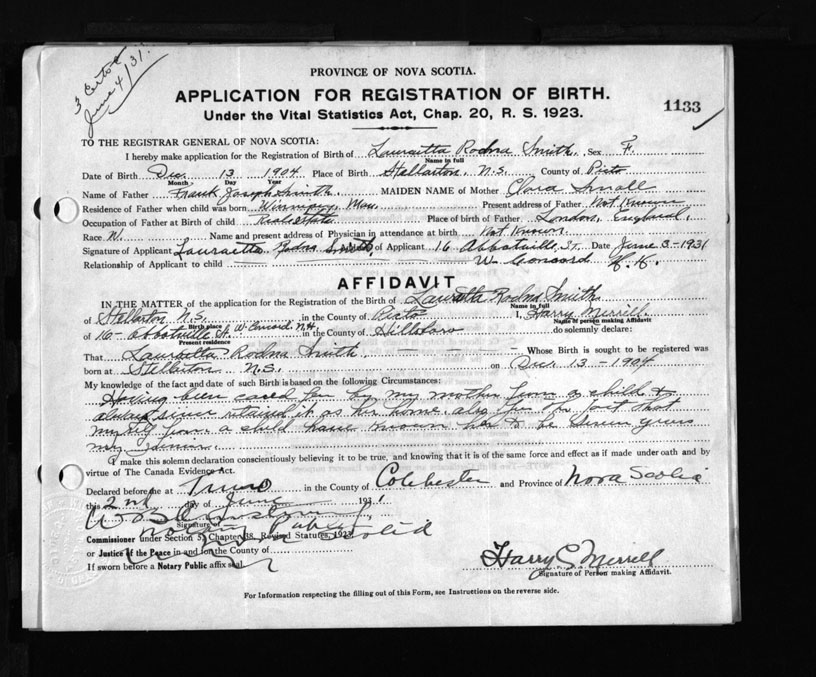 3 Certs
June 4/31.
PROVINCE OF NOVA SCOTIA.
APPLICATION FOR REGISTRATION OF BIRTH.
Under the Vital Statistics Act, Chap. 20, R. S. 1923.
1133
TO THE REGISTRAR GENERAL OF NOVA SCOTIA:
I hereby make application for the Registration of Birth of Lauraetta Rodna Smith. Sex F.
Name in full
Date of Birth Dec 13 1904 Place of Birth Stellarton, N.S. County of Picto
Month Day Year
Name of Father Frank Joseph Smith MAIDEN NAME of Mother Clara Small
Residence of Father when child was born Winnipeg, Man. Present address of Father Not Known
Occupation of Father at Birth of child Real Estate Place of Birth of Father London, England.
Race W. Name and present address of Physician in attendance at birth Not Known.
Signature of Applicant Lauraetta Rodna Smith. of Applicant 16 Abbotville, St. Date June 3-1931
Relationship of Applicant to child W. Concord N.H.
AFFIDAVIT
IN THE MATTER of the application for the Registration of the Birth of Lauraetta Rodna Smith
Name in full
of Stellarton N.S. in the County of Picto I, Harry Merrell.
Birth place Name of person making Affidavit
of 16- Abbotville St. W. Concord, N.H. in the County of Hillsboro do solemnly declare:
Present residence
That Lauraetta Rodna Smith Whose Birth is sought to be registered was
born at Stellarton N.S. on Dec 13-1904
My knowledge of the fact and date of such Birth is based on the following Circumstances:
Having been cared for by my mother from a child &
always since retained it as her home. also for the fact that
myself from a child have known her to be seven years
my junior.
I make this solemn declaration conscientiously believing it to be true, and knowing that it is of the same force and effect as if made under oath and by
virtue of The Canada Evidence Act.
Declared before me at Truro in the County of Colchester and Province of Nova Scotia
this 2nd day of June 1931
Signature of
Notary Public
Commissioner under Section 5, Chapter 38, Revised Statutes, 1923
or Justice of the Peace in and for the County of
If sworn before a Notary Public affix seal.
Harry S. Merrell
Signature of Person making Affidavit.
For Information respecting the filling out of this Form, see Instructions on the reverse side.